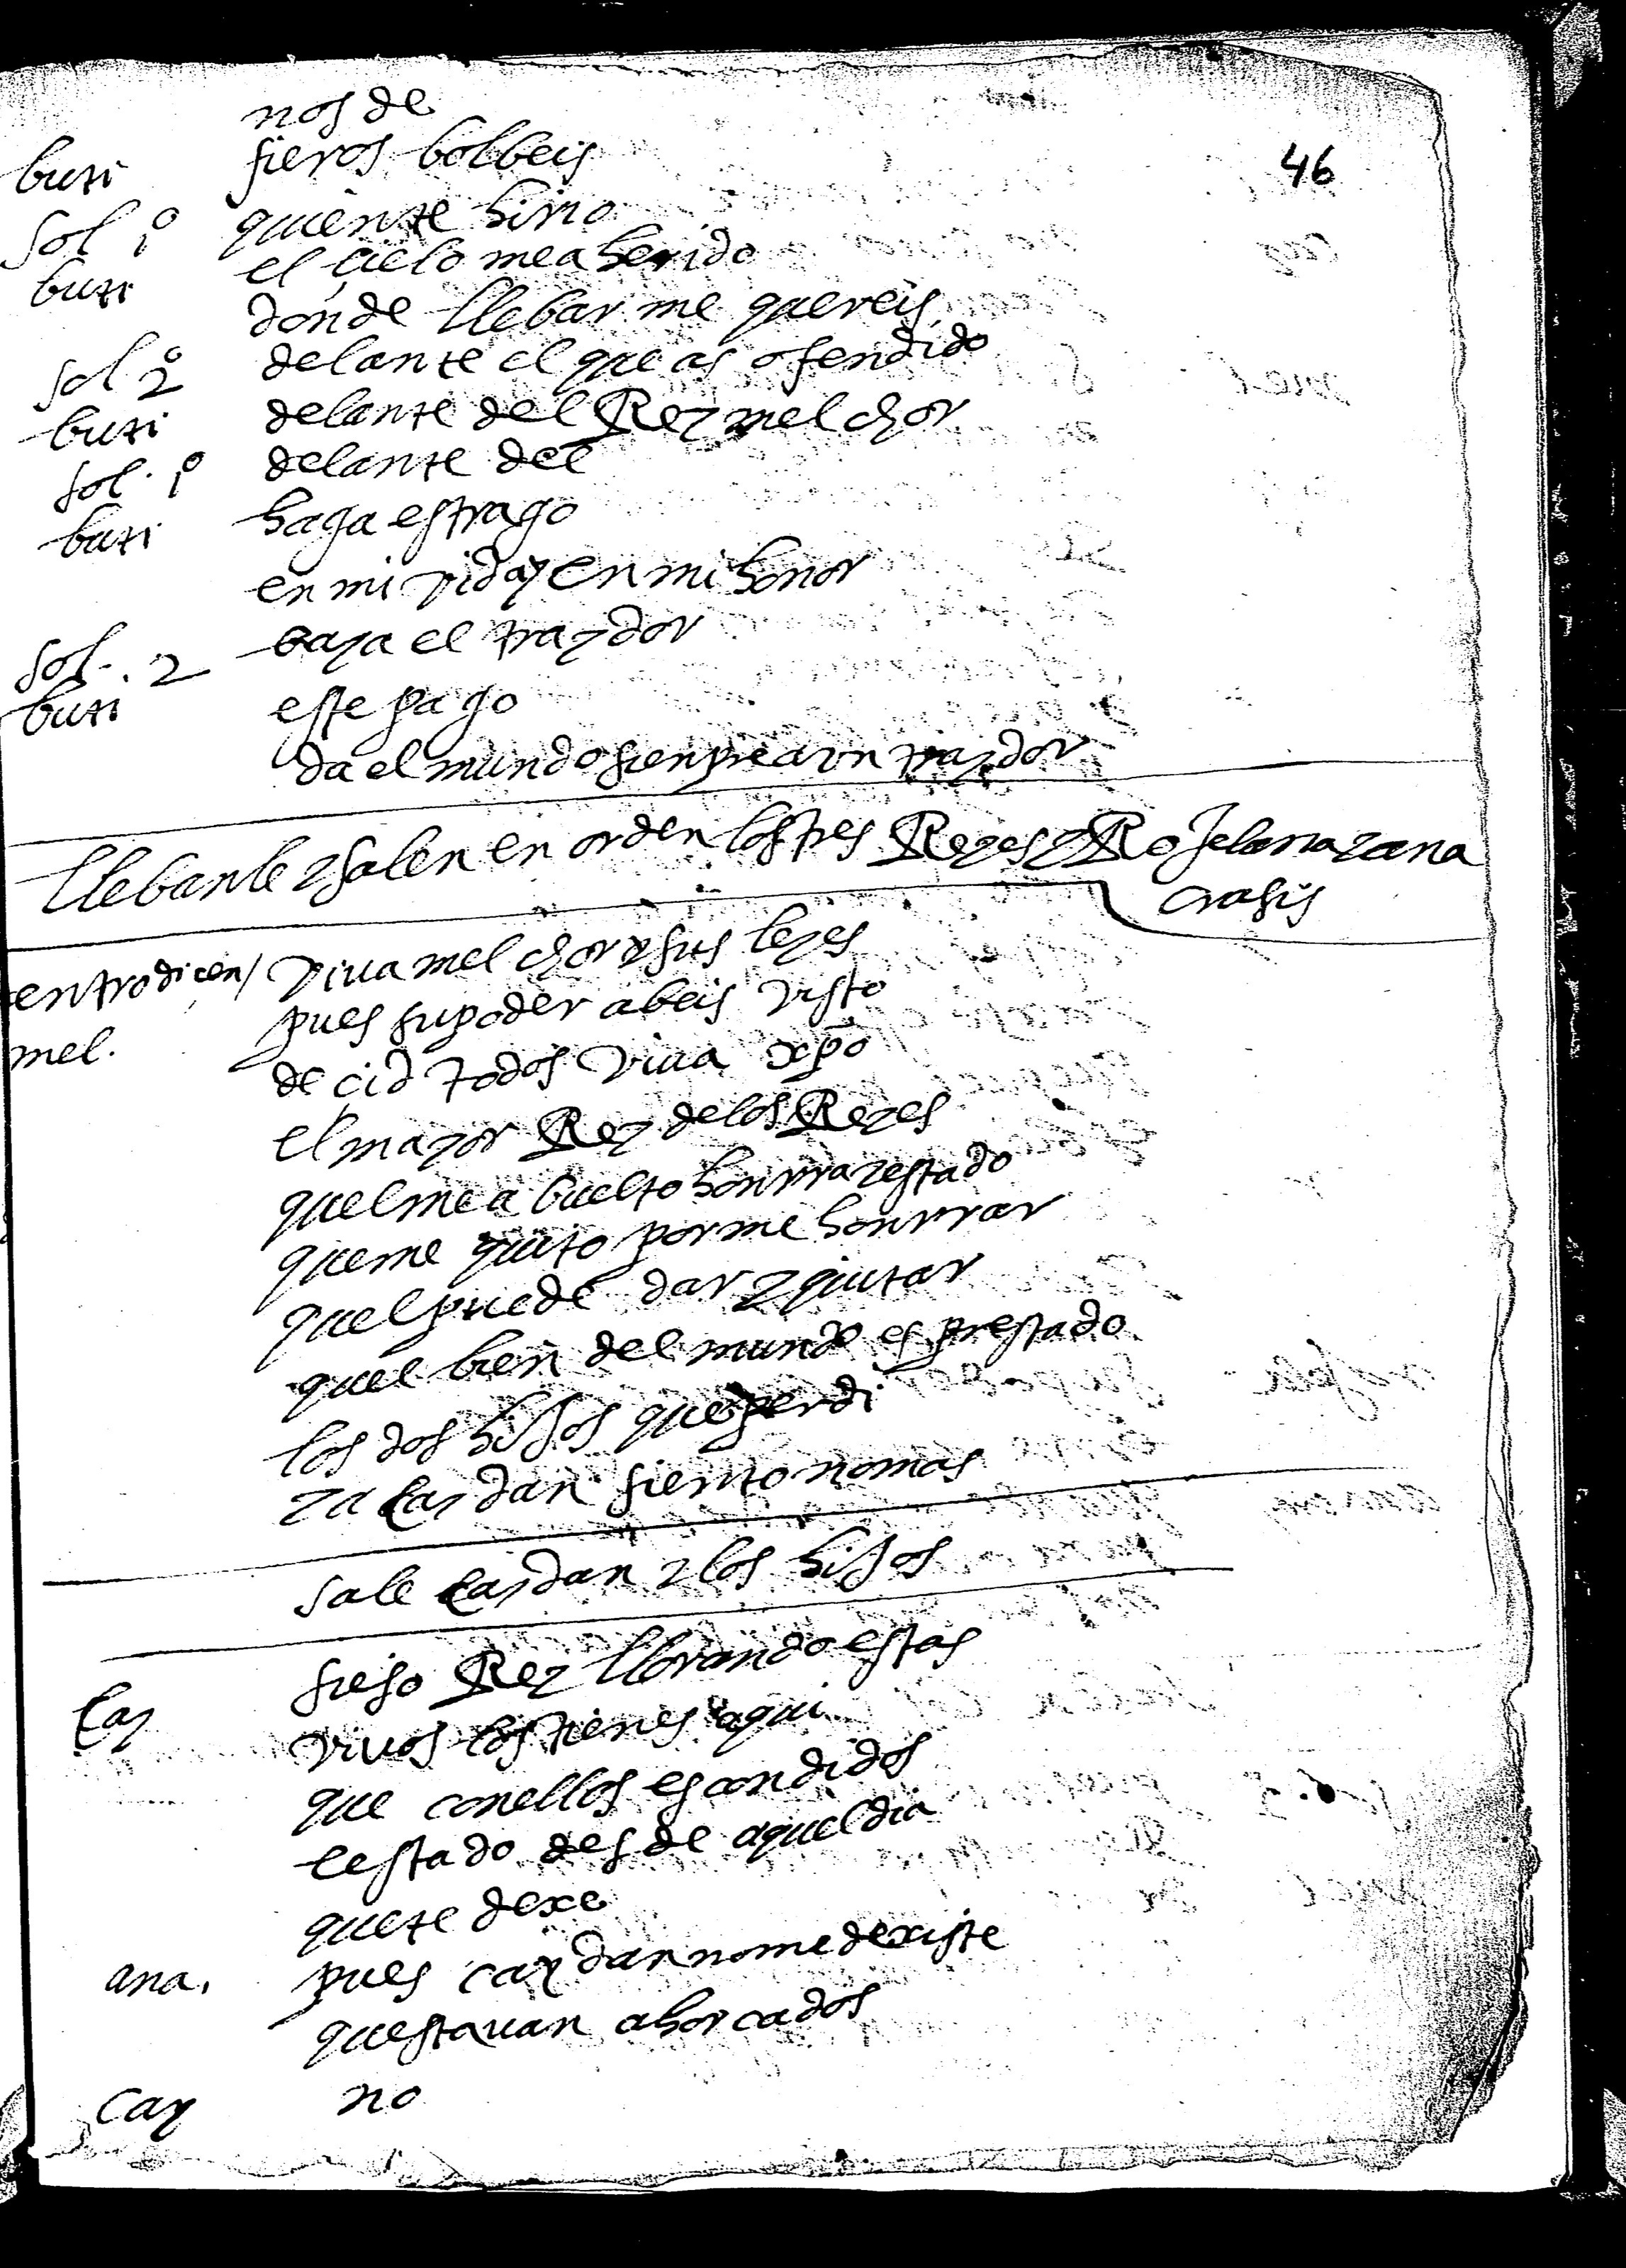 46
nos de
buti fieros bolbeis
sol 1º quiente hirio
buti el çielo mea herido
donde llebar me quereis
sol 2º delante el que as ofendido
buti delante del Rey mel chor
sol. 1º delante del
buti haga estrago
en mi vida y en mi honor
sol. 2 vaya el traydor
buti este pago
da el mundo sienpre a vn traydor
llebanle y salen en orden los tres Reyes y Rosela
crasis
entro dicen / viua mel chor y sus leyes
mel. pues su poder abeis visto
decid todos viua xpo
el mayor Rey de los Reyes
quel mea buelto honrra y estado
queme quito por me honrrar
quel puede dar y quitar
quel bien del mundo es prestado
los dos hijos que perdi
ya caydan siento nomas
sale caydan y los hijos
cay fiejo Rey llorando estas
viuos los tienes aqui
que conellos escondidos
eestado desde aquel dia
quete dexe
ana. pues caydan nome dexiste
questauan ahorcados
cay no